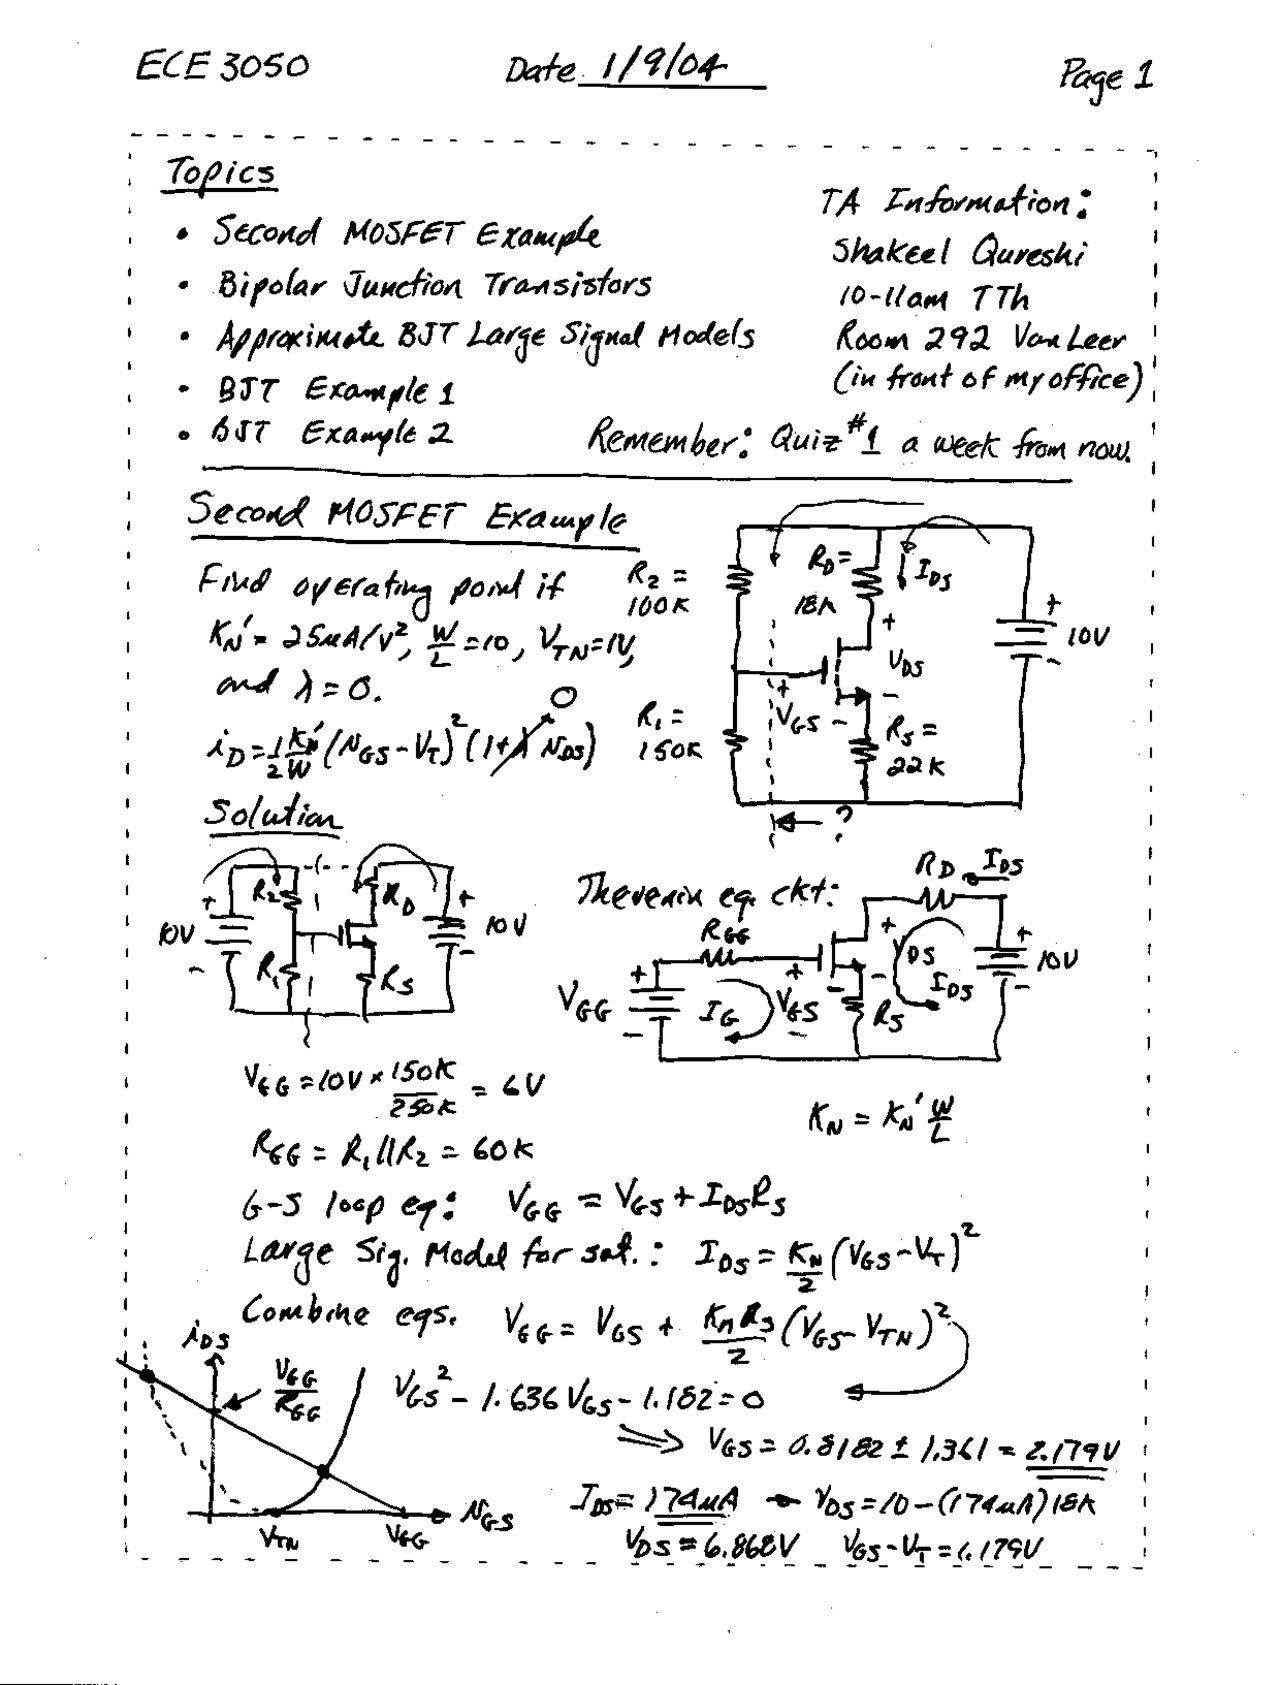 ECE 3050 Date 1/9/04 Page 1
Topics
• Second MOSFET Example
• Bipolar Junction Transistors
• Approximate BJT Large Signal Models
• BJT Example 1
• BJT Example 2
TA Information:
Shakeel Qureshi
10-11am TTh
Room 292 Van Leer
(in front of my office)
Remember: Quiz #1 a week from now.
Second MOSFET Example
Find operating point if
K_N' = 25μA/V², W/L = 10, V_TN = 1V,
and λ = 0.
i_D = 1/2 K_N'/W (v_GS - V_T)² (1 + λ v_DS) 0
R_2 = 100K
R_D = 18K
I_DS
+
10V
-
+
V_DS
-
+
V_GS -
R_1 = 150K
R_S = 22K
?
Solution
10V + - R_2 R_1 R_D R_S + - 10V
Thevenin eq. ckt:
R_D I_DS
R_GG
V_GG + - I_G + V_GS - + V_DS - I_DS R_S + - 10V
V_GG = 10V × 150K/250K = 6V
K_N = K_N' W/L
R_GG = R_1||R_2 = 60K
G-S loop eq: V_GG = V_GS + I_DS R_S
Large Sig. Model for sat.: I_DS = K_N/2 (V_GS - V_T)²
Combine eqs. V_GG = V_GS + K_N R_S/2 (V_GS - V_TN)²
i_DS
V_GG/R_GG
V_GS² - 1.636 V_GS - 1.182 = 0
⇒ V_GS = 0.8182 ± 1.361 = 2.179V
V_TN V_GG v_GS
I_DS = 174μA → V_DS = 10 - (174μA)18K
V_DS = 6.868V V_GS - V_T = 1.179V